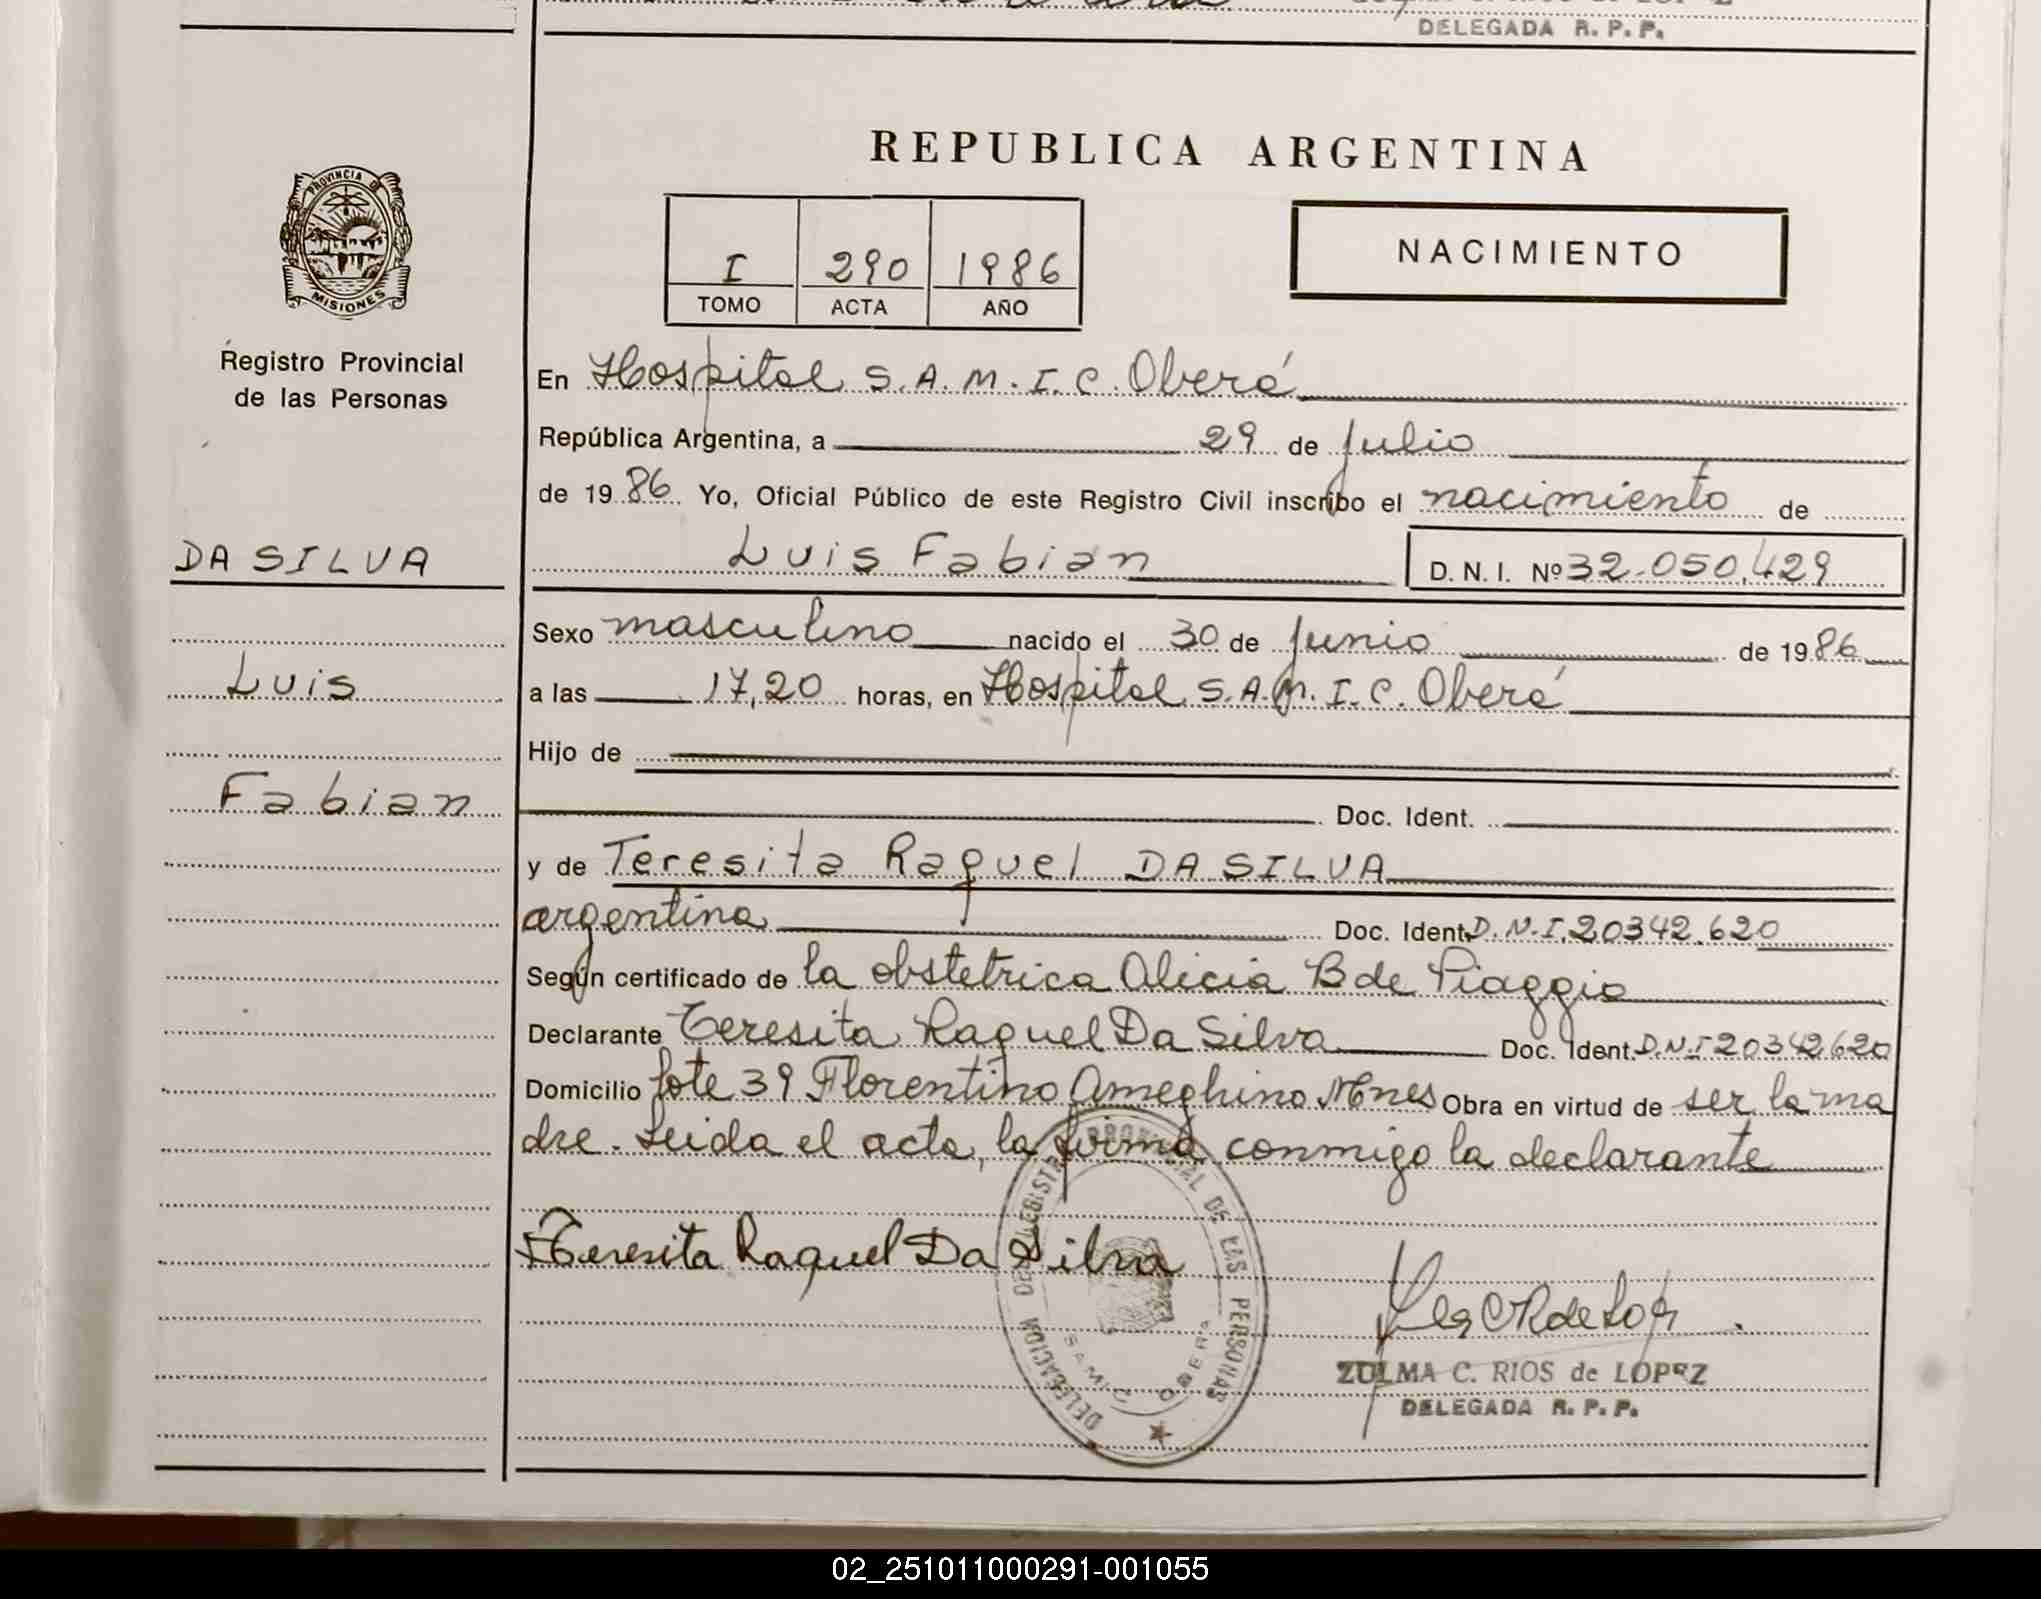 DELEGADA R. P. P.
REPUBLICA ARGENTINA
PROVINCIA DE
MISIONES
I 290 1986
TOMO ACTA AÑO
NACIMIENTO
Registro Provincial
de las Personas
En Hospital S.A.M.I.C. Oberá
República Argentina, a 29 de Julio
de 1986 Yo, Oficial Público de este Registro Civil inscribo el nacimiento de
DA SILVA
Luis Fabian D. N. I. Nº 32.050.429
Sexo masculino nacido el 30 de Junio de 1986
Luis
a las 17,20 horas, en Hospital S.A.M.I.C. Oberá
Hijo de
Fabian
Doc. Ident.
y de Teresita Raquel DA SILVA
argentina Doc. Ident. D.N.I. 20342.620
Según certificado de la obstetrica Alicia B de Piaggio
Declarante Teresita Raquel Da Silva Doc. Ident. D.N.I 20342620
Domicilio lote 39 Florentino Ameghino Mnes Obra en virtud de ser la ma
dre. Leida el acta, la firma conmigo la declarante
Teresita Raquel Da Silva
DELEGACION DEL REGISTRO PROVINCIAL DE LAS PERSONAS
SAMIC OBERA
ZULMA C. RIOS de LOPEZ
DELEGADA R. P. P.
02_251011000291-001055